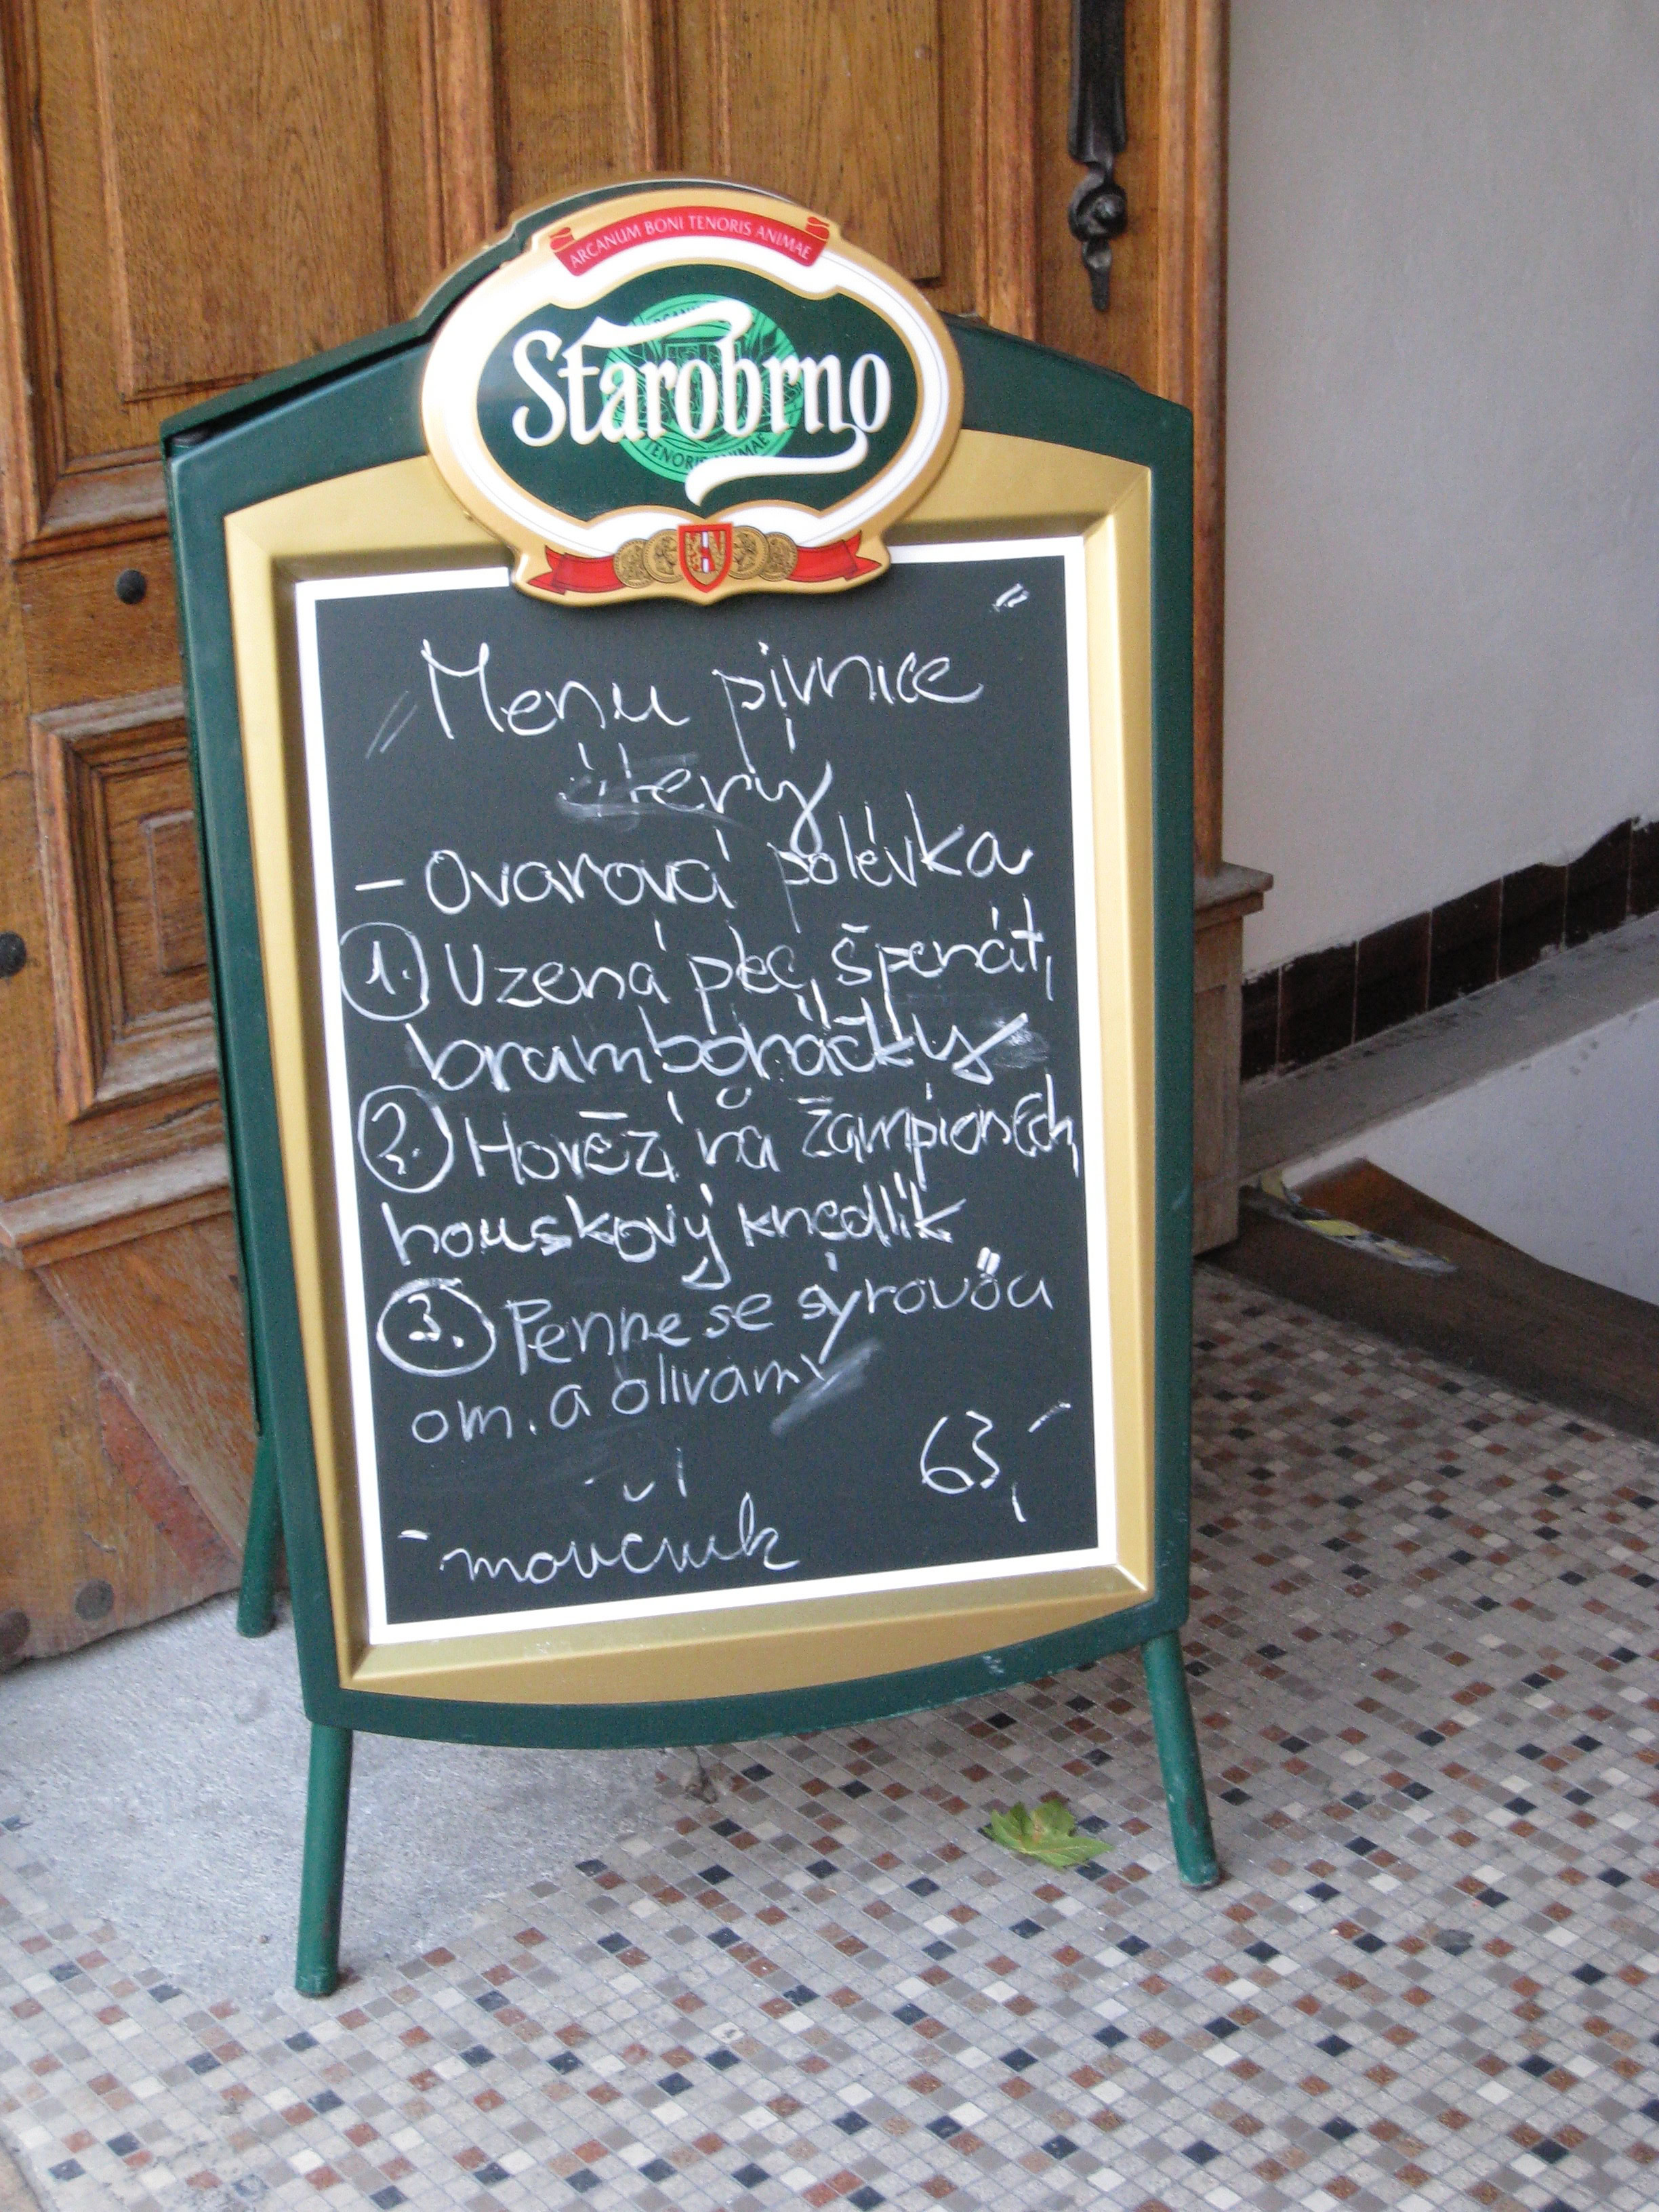 ARCANUM BONI TENORIS ANIMAE
Starobrno
TENORIS ANIMAE
Menu pivnice
úterý
- Ovarová polévka
1. Uzená plec, špenát,
bramboráčky
2. Hovězí na žampionech
houskový knedlík
3. Penne se sýrovou
om. a olivami
63,-
- moučník